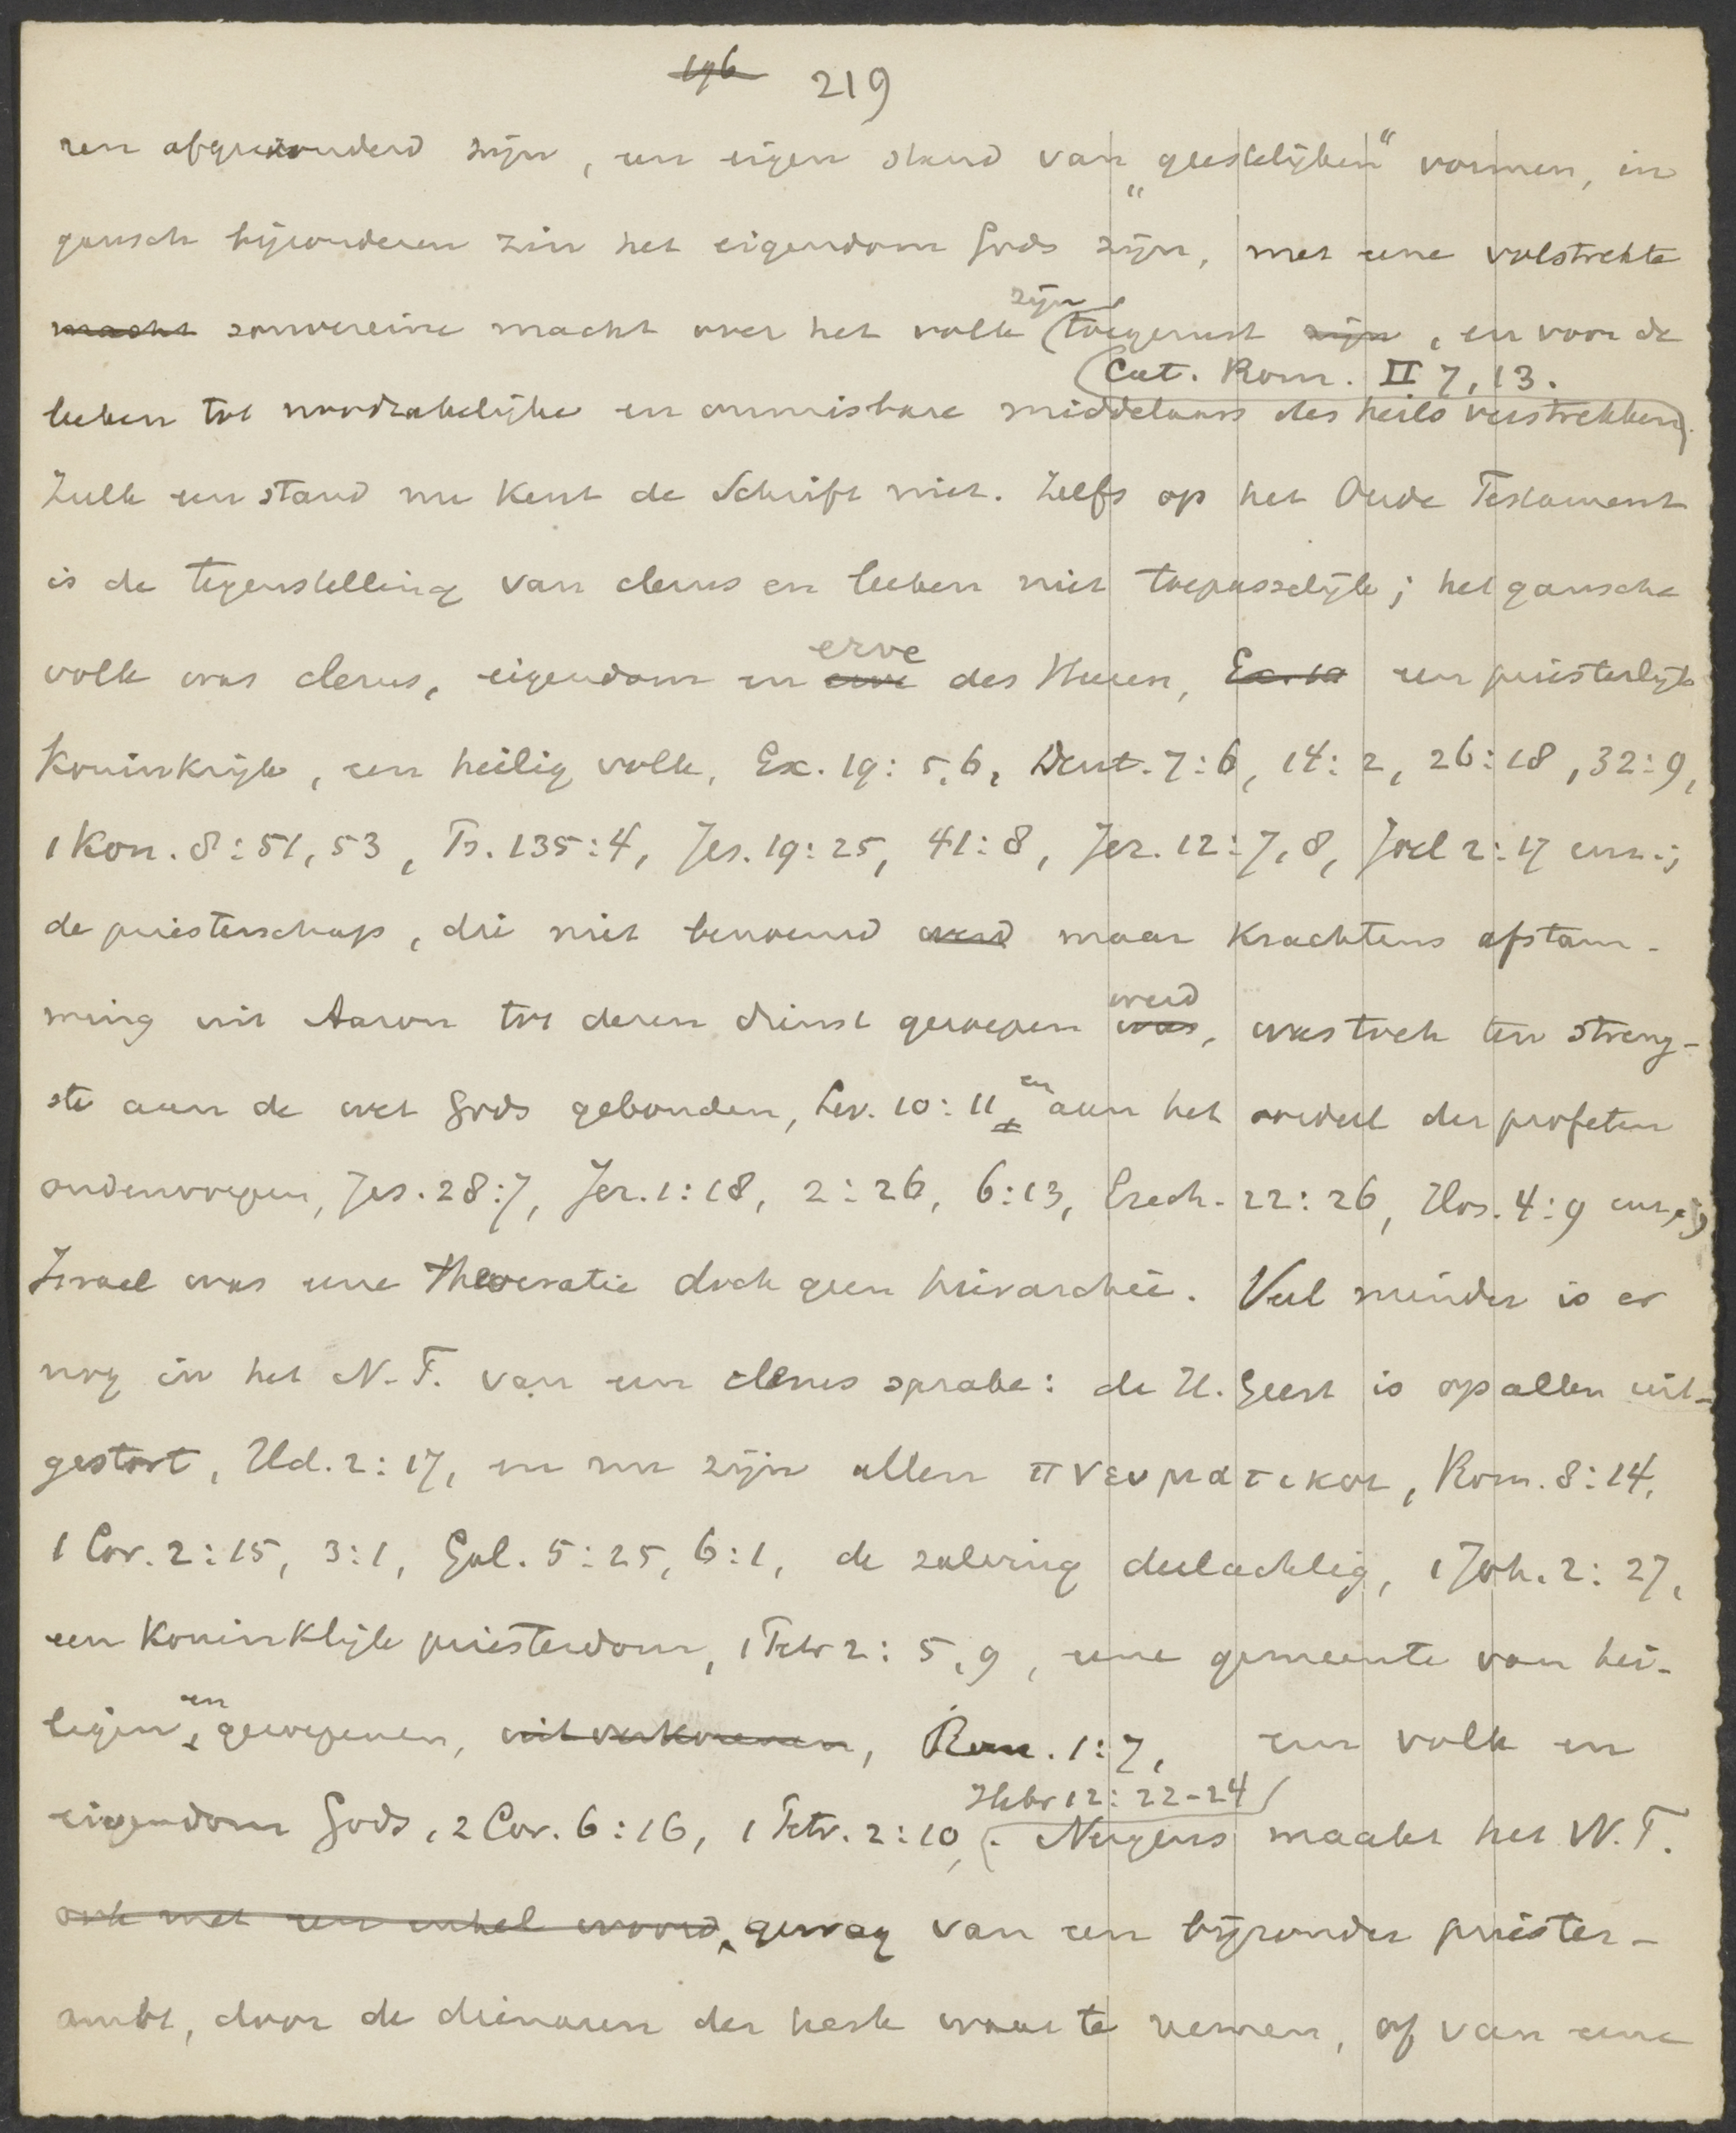 196 219
ren afgezonderd zijn, een eigen stand van „geestelijken“ vormen, in
gansch bijzonderen zin het eigendom Gods zijn, met eene volstrekte
macht souvereine macht over het volk zijn toegerust zijn, en voor de
Cat. Rom. II 7, 13.
leeken tot noodzakelijke en onmisbare middelaars des heils verstrekken.
Zulk een stand nu kent de Schrift niet. Zelfs op het Oude Testament
is de tegenstelling van clerus en leeken niet toepasselijk; het gansche
erve
volk was clerus, eigendom en erve des Heeren, Ex. 19 een priesterlijk
Koninkrijk, een heilig volk, Ex. 19:5,6, Deut. 7:6, 14:2, 26:18, 32:9,
1 Kon. 8:51, 53, Ps. 135:4, Jes. 19:25, 41:8, Jer. 12:7,8, Joel 2:17 enz.;
de priesterschap, die niet benoemd werd maar krachtens afstam-
werd
ming uit Aaron tot deren dienst geroepen was, was toch ten streng-
ste aan de wet Gods gebonden, Lev. 10:11, en aan het oordeel der profeten
onderworpen, Jes. 28:7, Jer. 1:18, 2:26, 6:13, Ezech. 22:26, Hos. 4:9 enz.;
Israel was eene theocratie doch geen hierarchie. Veel minder is er
nog in het N.T. van een clerus sprake: de H. Geest is op allen uit-
gestort, Hd. 2:17, en nu zijn allen πνευματικοι, Rom. 8:14,
1 Cor. 2:15, 3:1, Gal. 5:25, 6:1, de zalving deelachtig, 1 Joh. 2:27,
een koninklijk priesterdom, 1 Petr 2:5,9, eene gemeente van hei-
ligen, en geroepenen, uitverkorenen, Rom. 1:7, een volk en
Hebr 12:22-24
eigendom Gods, 2 Cor. 6:16, 1 Petr. 2:10,. Nergens maakt het N.T.
ook met een enkel woord gewag van een bijzonder priester-
ambt, door de dienaren der kerk waar te nemen, of van eene